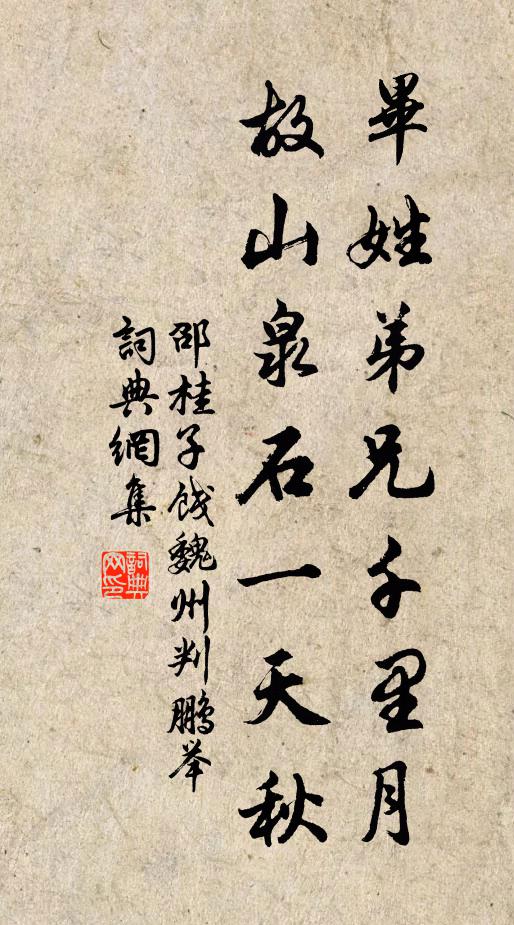 畢姓弟兄千里月
故山泉石一天秋
邵桂子餞魏州判鵬举
詞典網集
詞典网印